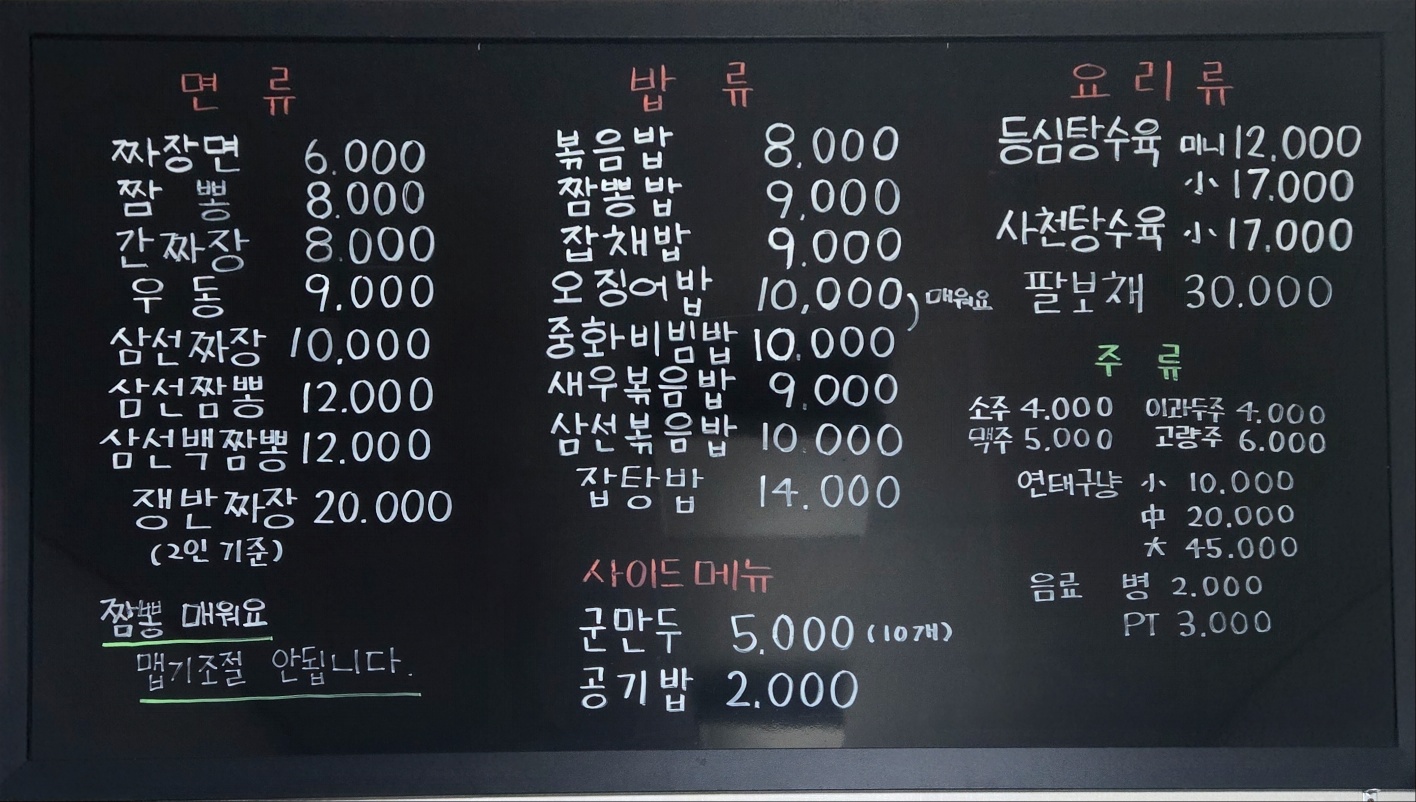 면 류
짜장면 6.000
짬 뽕 8.000
간짜장 8.000
우 동 9.000
삼선짜장 10.000
삼선짬뽕 12.000
삼선백짬뽕 12.000
쟁반짜장 20.000
(2인 기준)
짬뽕 매워요
맵기조절 안됩니다.
밥 류
볶음밥 8.000
짬뽕밥 9.000
잡채밥 9.000
오징어밥 10,000
중화비빔밥 10.000
매워요
새우볶음밥 9.000
삼선볶음밥 10.000
잡탕밥 14.000
사이드메뉴
군만두 5.000 (10개)
공기밥 2.000
요리류
등심탕수육 미니 12.000
小 17.000
사천탕수육 小 17.000
팔보채 30.000
주 류
소주 4.000 이과두주 4.000
맥주 5.000 고량주 6.000
연태구냥 小 10.000
中 20.000
大 45.000
음료 병 2.000
PT 3.000